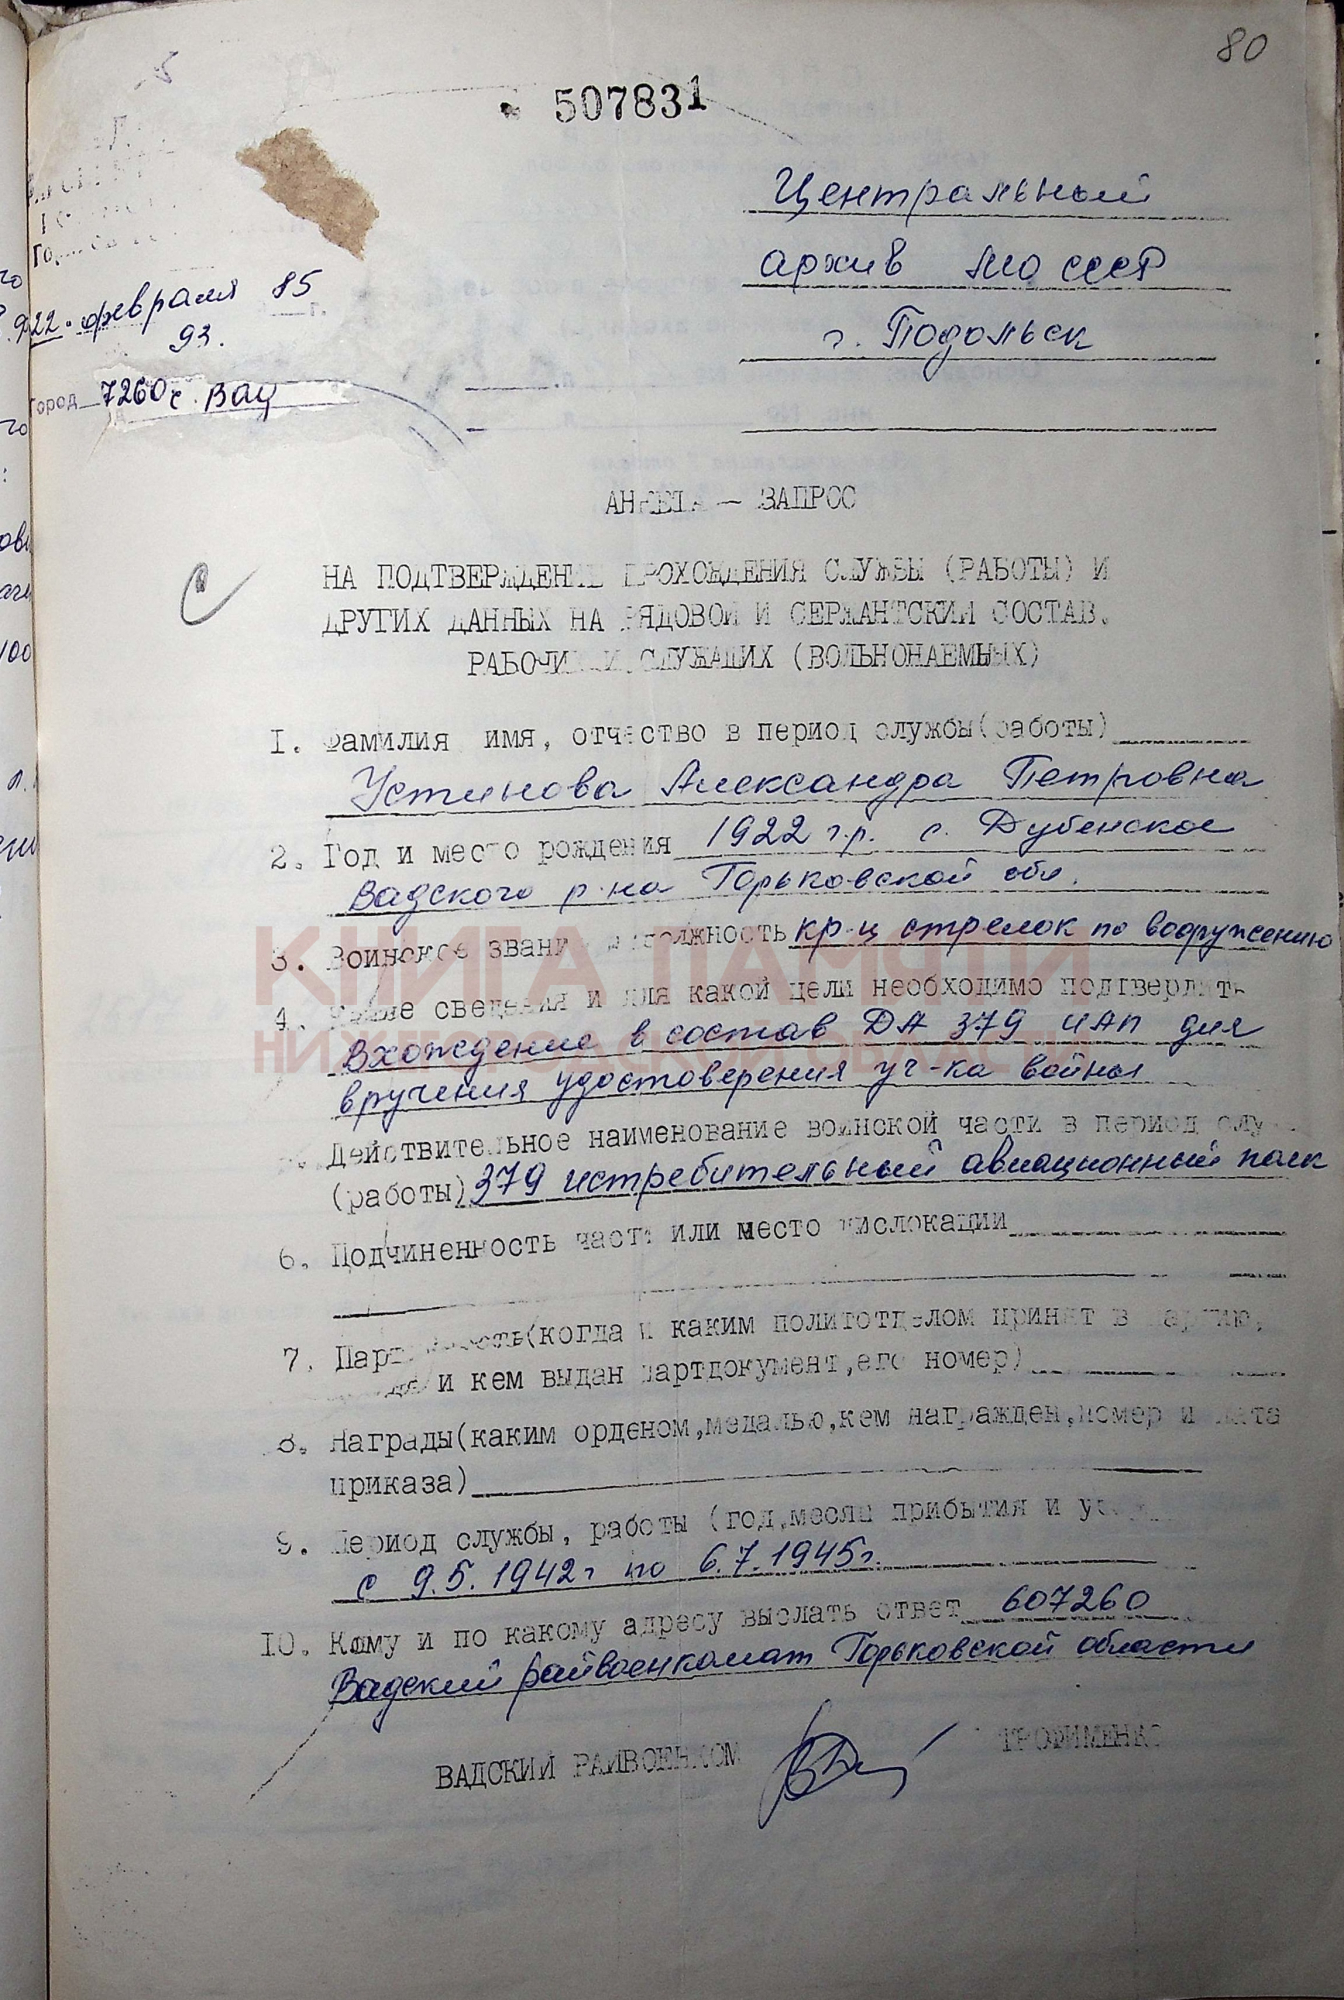 80
507831
Центральный
архив МО СССР
г. Подольск
22 февраля 85
93.
город 7260 с. Вад
АНКЕТА — ЗАПРОС
НА ПОДТВЕРЖДЕНИЕ ПРОХОЖДЕНИЯ СЛУЖБЫ (РАБОТЫ) И
ДРУГИХ ДАННЫХ НА РЯДОВОЙ И СЕРЖАНТСКИЙ СОСТАВ,
РАБОЧИХ И СЛУЖАЩИХ (ВОЛЬНОНАЕМНЫХ)
I. Фамилия, имя, отчество в период службы(работы)
Устинова Александра Петровна
2. Год и место рождения 1922 г.р. с. Дубенское
Вадского р-на Горьковской обл.
3. Воинское звание и должность кр-ц стрелок по вооружению
КНИГА ПАМЯТИ
4. Какие сведения и для какой цели необходимо подтвердить
Вхождение в состав ДА 379 ИАП для
НИЖЕГОРОДСКОЙ ОБЛАСТИ
вручения удостоверения уч-ка войны
Действительное наименование воинской части в период слу
(работы) 379 истребительный авиационный полк
6. Подчиненность части или место дислокации
7. Партийность(когда и каким политотделом принят в партию,
где и кем выдан партдокумент,его номер)
8. Награды(каким орденом,медалью,кем награжден,номер и дата
приказа)
9. Период службы, работы (год,месяц прибытия и
с 9.5.1942г по 6.7.1945г.
10. Кому и по какому адресу выслать ответ 607260
Вадский райвоенкомат Горьковской области
ВАДСКИЙ РАЙВОЕНКОМ ТРОФИМЕНКО